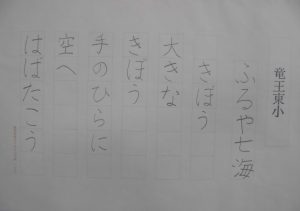 竜王東小
ふるや七海
きぼう
大きな
きぼう
手のひらに
空へ
はばたこう